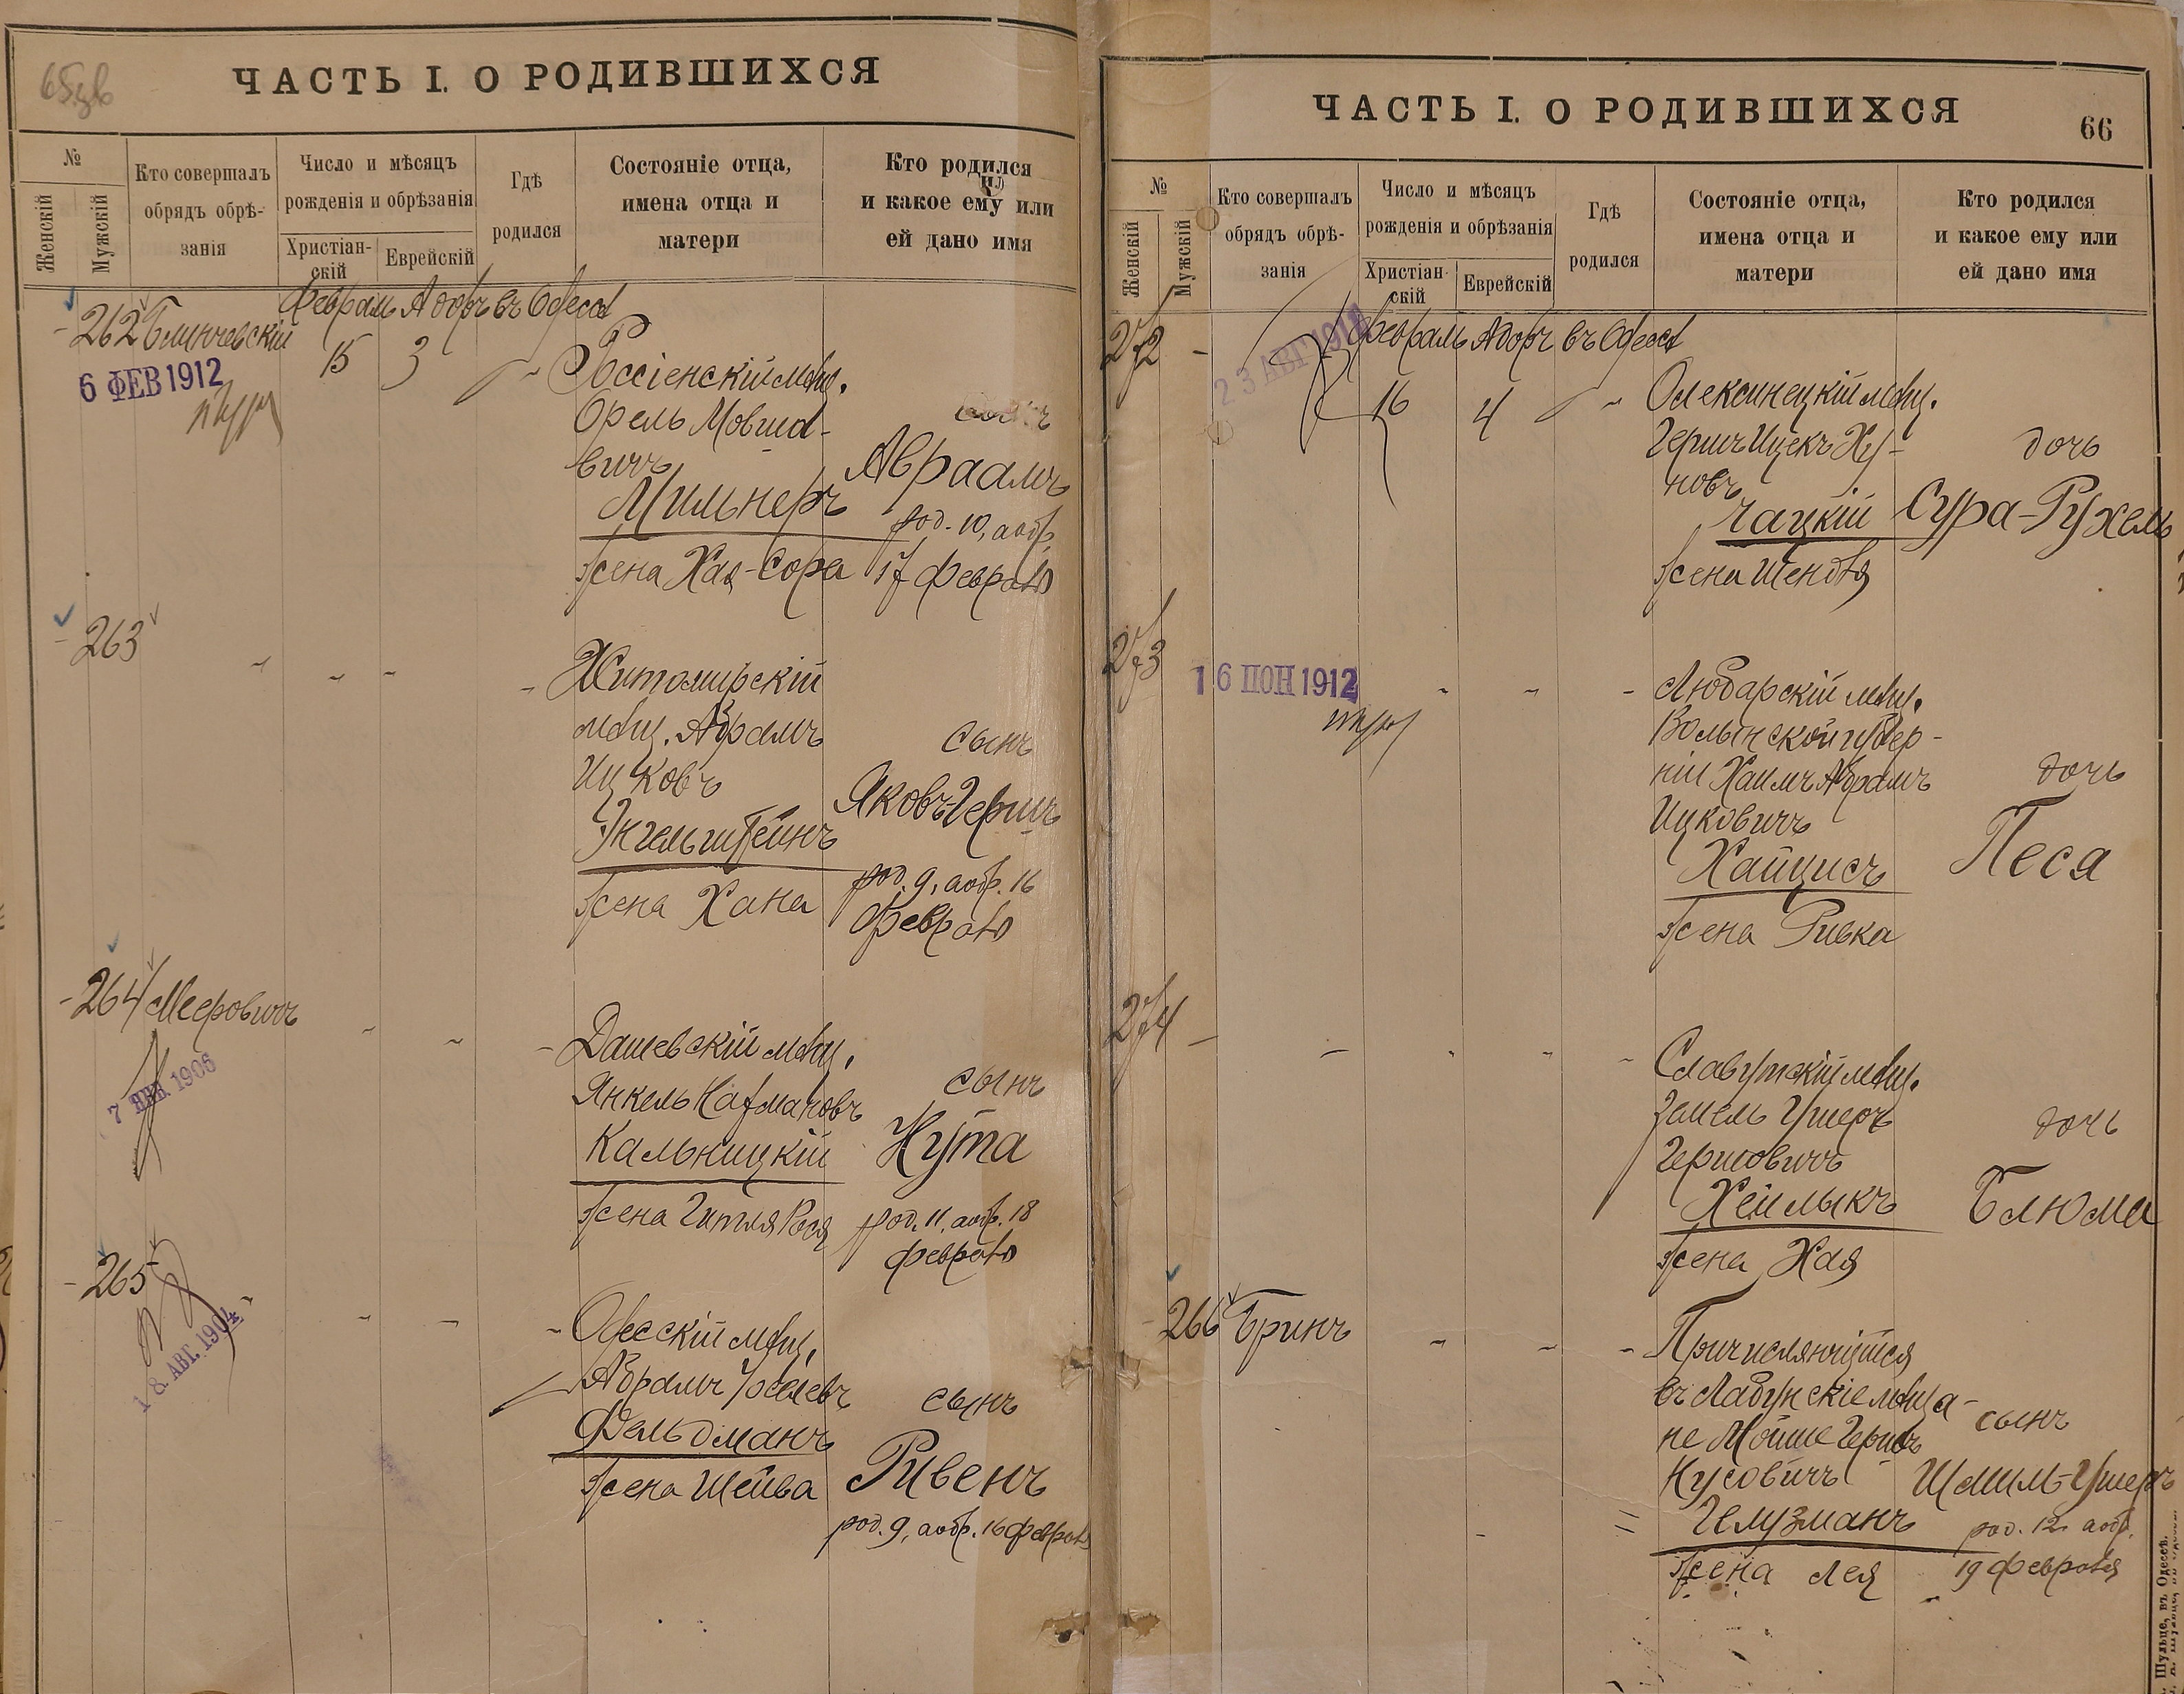 ЧАСТЬ I. О РОДИВШИХСЯ
№
Женскій
Мужскій
Кто совершалъ
обрядъ обрѣ-
занія
Число и мѣсяцъ
рожденія и обрѣзанія
Христіан-
скій
Еврейскій
Гдѣ
родился
Состояніе отца,
имена отца и
матери
Кто родился
и какое ему или
ей дано имя
Февраль Адоръ въ Одессѣ
262 Блинчевскій
15 3
6 ФЕВ 1912
Россіенскій мѣщ.
Орель Мовшо-
вичъ
Мильнеръ
жена Хая-Сора
сынъ
Авраамъ
род. 10, аобр.
17 февраля
263
Житомирскій
мѣщ. Абрамъ
Ицковъ
Энгельштейнъ
жена Хана
сынъ
Яковъ Герш
род. 9, аобр. 16
февраля
264 Мееровичъ
1906
Дашевскій мѣщ.
Янкель Нахмановъ
Кальницкій
жена Гитля Рося
сынъ
Нута
род. 11, аобр. 18
февраля
265
18. АВГ. 1904
Одесскій мѣщ.
Абрамъ
Фельдманъ
жена Шейва
сынъ
Рувенъ
род. 9, аобр. 16 февраля
ЧАСТЬ I. О РОДИВШИХСЯ
66
№
Женскій
Мужскій
Кто совершалъ
обрядъ обрѣ-
занія
Число и мѣсяцъ
рожденія и обрѣзанія
Христіан-
скій
Еврейскій
Гдѣ
родился
Состояніе отца,
имена отца и
матери
Кто родился
и какое ему или
ей дано имя
Февраль Адоръ въ Одессѣ
272
23 АВГ 1912
16 4
Олексинецкій мѣщ.
Герш Ицекъ Ху-
новъ
Чацкій
жена Шендля
дочь
Сура-Рухель
273
16 ІЮН 1912
Любарскій мѣщ.
Волынской губер-
ніи Хаимъ Абрамъ
Ицковичъ
Хайцисъ
жена Ривка
дочь
Песя
274
Славутскій мѣщ.
Зейель Ушеръ
Гершовичъ
Хеймыкъ
жена Хая
дочь
Блюма
266 Бринъ
Причисляющійся
въ Лабунскіе мѣща-
не Мойше Герш
Нусовичъ
Гелузманъ
жена Лея
сынъ
Шмиль-Ушеръ
род. 12 аобр.
19 февраля
Шульце, въ Одессѣ.